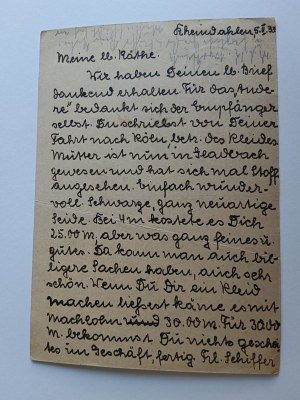 Rheindahlen, 5.I.39
Meine lb. Käthe.
Wir haben Deinen lb. Brief
dankend erhalten. Für das Ande-
re bedankt sich der Empfänger
selbst. Du schriebst von Deiner
Fahrt nach Köln, betr. des Kleides
Mutter ist nun in Gladbach
gewesen und hat sich mal Stoff
angesehen. Einfach wunder-
voll Schwarze, ganz neuartige
Seide. Bei 4 m kostete es Dich
25.00 M, aber was ganz feines u.
gutes. Da kann man auch bil-
ligere Sachen haben, auch sehr
schön. Wenn Du Dir ein Kleid
machen ließest käme es mit
Machlohn und 30.00 M. Für 30.00
M. bekommst Du nichts gesch
tes im Geschäft, fertig. Frl. Schiffer